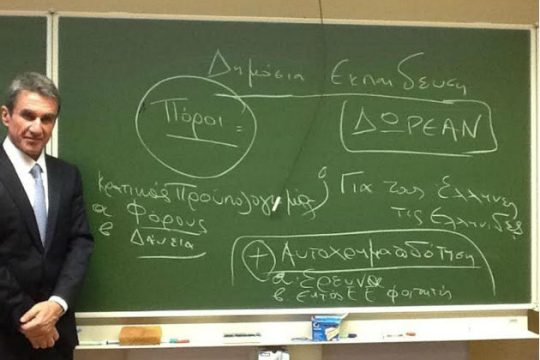 Δημόσια Εκπαίδευση
Πόροι =
ΔΩΡΕΑΝ
Κρατικός Προϋπολογισμός
Για τους Έλληνες
τις Ελληνίδες
α Φόρους
β Δάνεια
+ Αυτοχρηματοδότηση
α Έρευνα
β εκτός ΕΕ φοιτητή